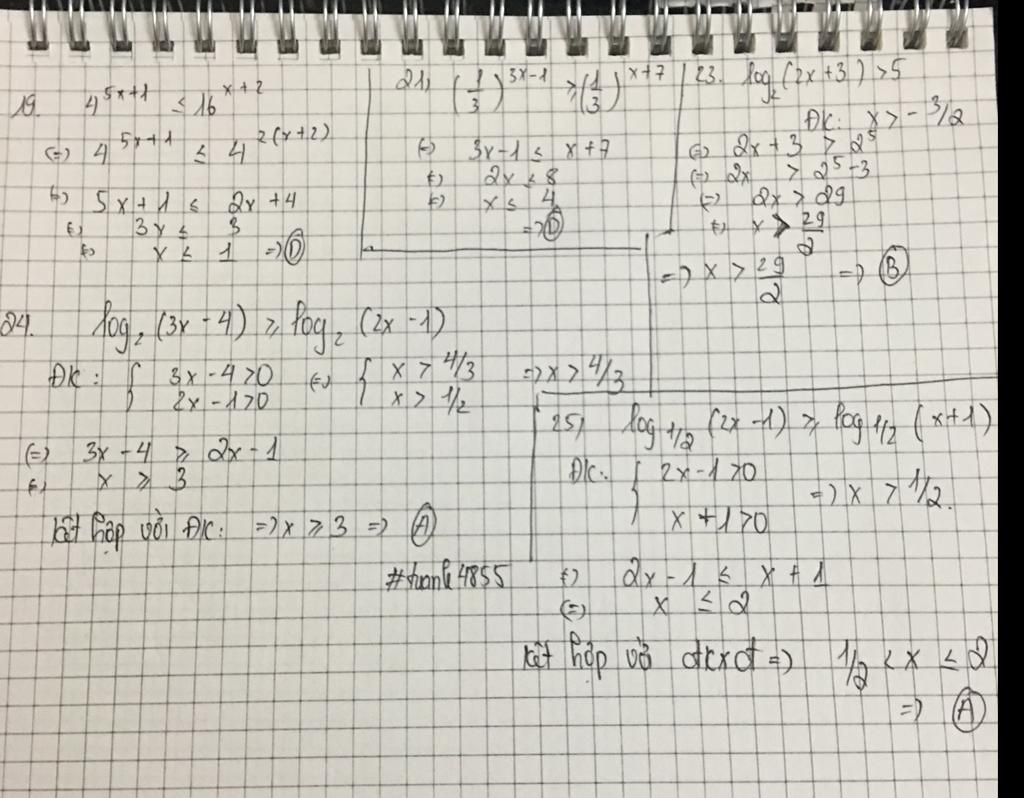 19. 4^{5x+1} ≤ 16^{x+2}
(=) 4^{5x+1} ≤ 4^{2(x+2)}
(=) 5x+1 ≤ 2x+4
(=) 3x ≤ 3
(=) x ≤ 1 => Ⓓ
21, (1/3)^{3x-1} ≥ (1/3)^{x+7}
(=) 3x-1 ≤ x+7
(=) 2x ≤ 8
(=) x ≤ 4
=> Ⓓ
23. log₂(2x+3) > 5
ĐK: x > -3/2
(=) 2x + 3 > 2⁵
(=) 2x > 2⁵-3
(=) 2x > 29
(=) x > 29/2
=> x > 29/2 => Ⓑ
24. log₂(3x-4) ≥ log₂(2x-1)
ĐK: { 3x-4>0 (=) { x > 4/3 => x > 4/3
2x-1>0 x > 1/2
(=) 3x-4 ≥ 2x-1
(=) x ≥ 3
kết hợp với ĐK: => x ≥ 3 => Ⓐ
#tuanh4855
25, log_{1/2}(2x-1) ≥ log_{1/2}(x+1)
ĐK: { 2x-1>0 => x > 1/2.
x+1>0
(=) 2x-1 ≤ x+1
(=) x ≤ 2
kết hợp với đkxđ => 1/2 < x ≤ 2
=> Ⓐ